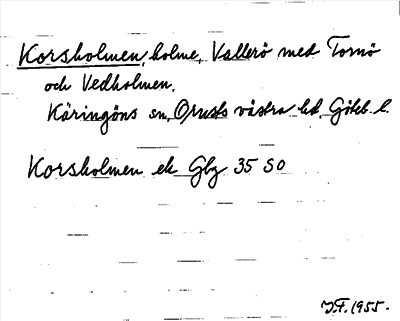 Korsholmen, holme, Vallerö med Tornö
och Vedholmen.
Käringöns sn, Orusts västra hd, Göteb. l.
Korsholmen ek Gbg 35 SO
J.F. 1955.